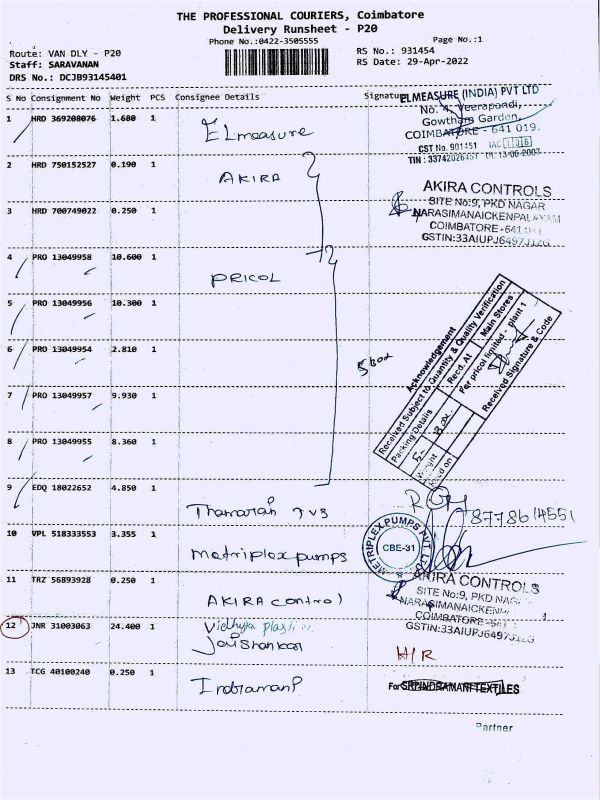 THE PROFESSIONAL COURIERS, Coimbatore
Delivery Runsheet - P20
Phone No.:0422-3505555
Page No.:1
Route: VAN DLY - P20
RS No.: 931454
Staff: SARAVANAN
RS Date: 29-Apr-2022
DRS No.: DCJB93145401
S No Consignment No Weight PCS Consignee Details Signature
ELMEASURE (INDIA) PVT LTD
No. 4, Veerapandi,
Gowtham Garden,
COIMBATORE - 641 019.
CST No. 901451
TIN : 33742026451 Dt. 13-06-2007
1 HRD 369208076 1.680 1
ELmeasure
2 HRD 750152527 0.190 1
AKIRA
AKIRA CONTROLS
SITE No:9, PKD NAGAR
NARASIMANAICKENPALAYAM
COIMBATORE-641
GSTIN:33AIUPJ6497J1ZG
3 HRD 700749022 0.250 1
4 PRO 13049958 10.600 1
PRICOL
5 PRO 13049956 10.300 1
6 PRO 13049954 2.810 1
5 Box
7 PRO 13049957 9.930 1
8 PRO 13049955 8.360 1
Acknowledgement
Received Subject to Quantity & Quality Verification
Packing Details Recd. At Main Stores
5 Box Per pricol limited - plant 1
Weight
Recd on Received Signature & Code
9 EDQ 18022652 4.850 1
Thamarai TVS
8778614551
10 VPL 518333553 3.355 1
metriplex pumps
METRIPLEX PUMPS PVT LTD
CBE-31
11 TRZ 56893928 0.250 1
AKIRA control
AKIRA CONTROLS
SITE No:9, PKD NAGAR
NARASIMANAICKENPALAYAM
COIMBATORE-641
GSTIN:33AIUPJ6497J1ZG
12 JNR 31003063 24.400 1
Vidhya plastic
Jaishankar
H/R
13 TCG 40100240 0.250 1
Indramani
For SRI INDRAMANI TEXTILES
Partner